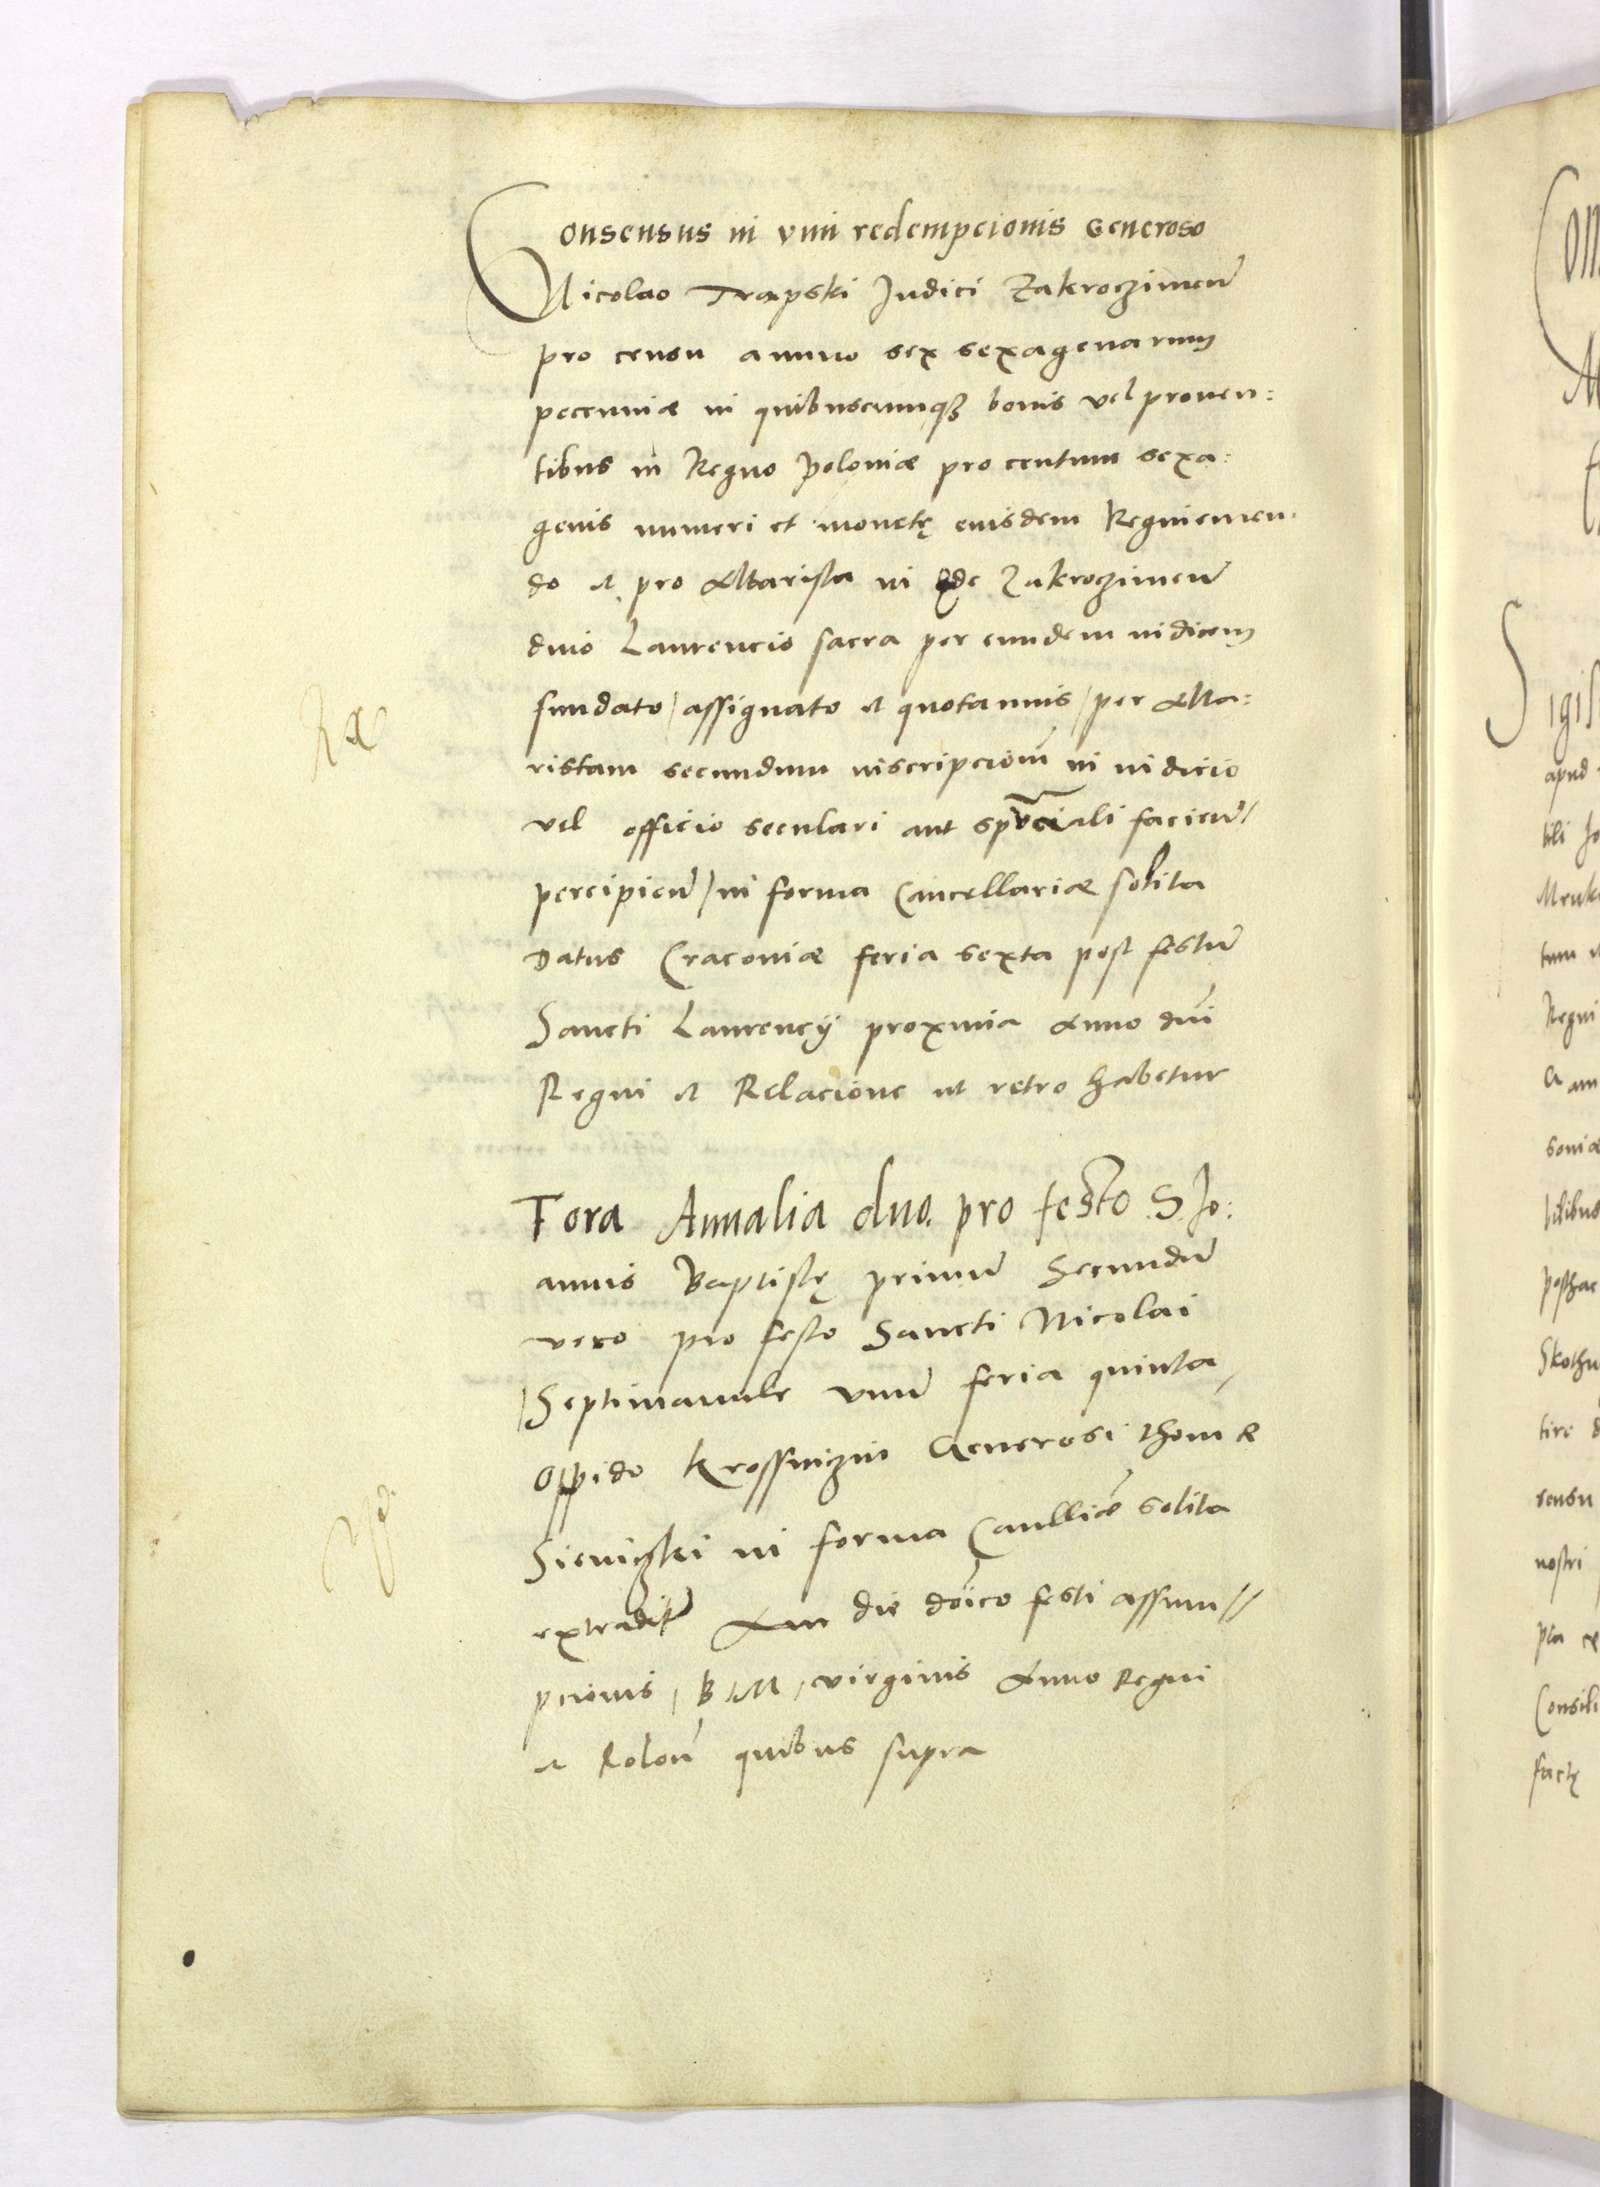 Consensus in vim redempcionis Generoso
Nicolao Trapski Judici Zakrocziment
pro censu annuo sex sexagenarum
peccuniæ in quibuscumqȝ bonis vel proven:
tibus in Regno Poloniæ pro centum sexa:
genis numeri et monetę eiusdem Regni emen
do et pro Altarista in Ede Zakrocziment
divo Laurencio sacra per eundem iudicem
fundato / assignato et quotannis / per Alta:
ristam secundum inscripcionē in iudicio
vel officio seculari aut spūali faciend /
percipiend / in forma Cancellariæ solita
Datus Cracoviæ feria sexta post festū
Sancti Laurencij proxima Anno dn̄i
Regni et Relacione ut retro habetur
Fora Annalia duo. pro festo S. Jo:
annis Baptistę primū Secundū
vero pro festo Sancti Nicolai
Septimanale vnū feria quinta /
Oppido Generosi Thomæ
in forma Canlliæ solita
extraditū die dōico festi assum //
pcionis / B / M / virginis Anno Regni
et Relone quibus supra
Con
M
S
igis
apud
bili Jo
tum
Regni
soniæ
posthac
tire d
censu
nostri
Consili
factę